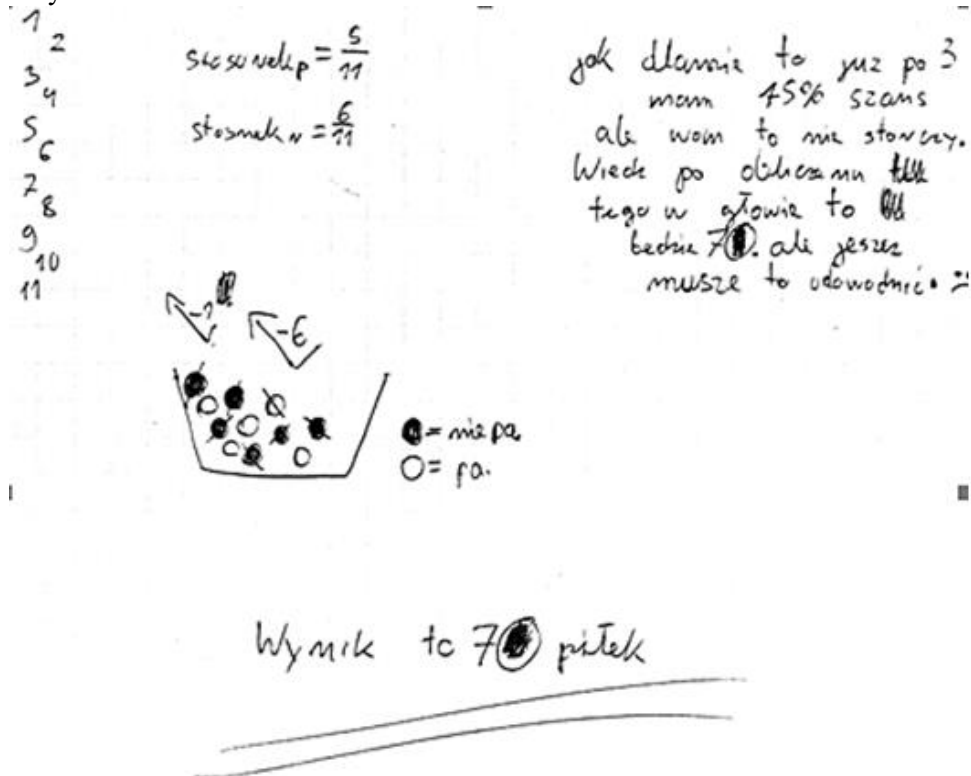 1
2
3
4
5
6
7
8
9
10
11
stosunek p = 5/11
stosunek n = 6/11
jak dlamnie to juz po 3
mam 45% szans
ale wam to nie starczy.
Wieck po obliczeniu
tego w głowie to
bedzie 7. ale jeszcz
musze to udowodnić. :)
-1
-6
= nie pa.
= pa.
Wynik to 7 piłek